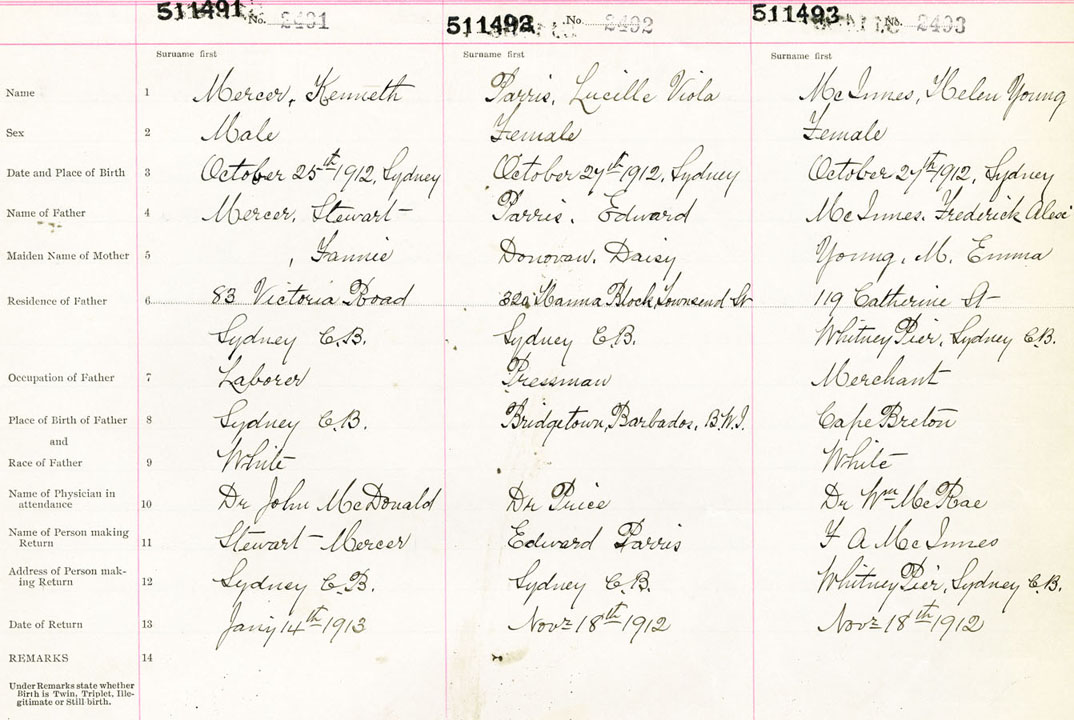 511491 No. 2491 511492 No. 2492 511493 No. 2493
Surname first Surname first Surname first
Name 1 Mercer, Kenneth Parris, Lucille Viola McInnes, Helen Young
Sex 2 Male Female Female
Date and Place of Birth 3 October 25th 1912, Sydney October 27th 1912, Sydney October 27th 1912, Sydney
Name of Father 4 Mercer, Stewart Parris, Edward McInnes, Frederick Alex
Maiden Name of Mother 5 , Fannie Donovan, Daisy Young, M. Emma
Residence of Father 6 83 Victoria Road Hanna Block, Townsend St 119 Catherine St
Sydney C.B. Sydney C.B. Whitney Pier, Sydney C.B.
Occupation of Father 7 Laborer Pressman Merchant
Place of Birth of Father 8 Sydney C.B. Bridgetown, Barbados, B.W.I. Cape Breton
and
Race of Father 9 White White
Name of Physician in
attendance 10 Dr John McDonald Dr Price Dr Wm McRae
Name of Person making
Return 11 Stewart Mercer Edward Parris F A McInnes
Address of Person mak-
ing Return 12 Sydney C.B. Sydney C.B. Whitney Pier, Sydney C.B.
Date of Return 13 Jany 14th 1913 Novr 18th 1912 Novr 18th 1912
REMARKS 14
Under Remarks state whether
Birth is Twin, Triplet, Ille-
gitimate or Still-birth.